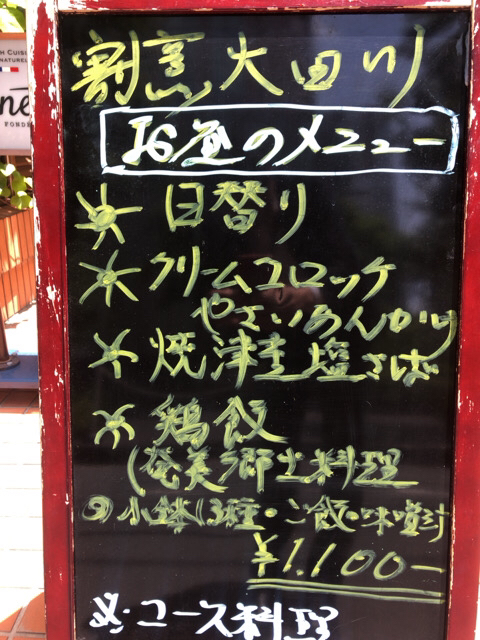 割烹 大田川
お昼のメニュー
日替り
クリームコロッケ
やさいあんかけ
焼津産塩さば
鶏飯
(奄美郷土料理
小鉢3種・ご飯・味噌汁
¥1.100-
コース料理